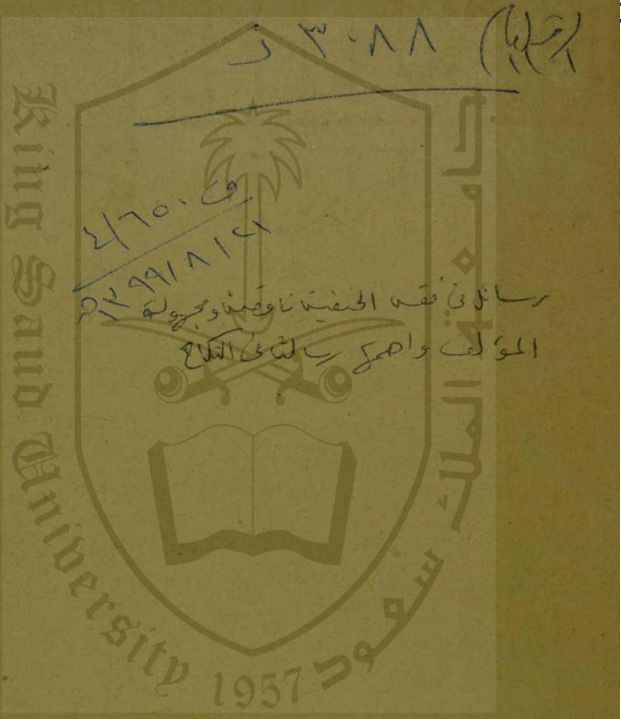 ٣٠٨٨ ز
ف ٤/٦٥٠
١٣٩٩/٨/٢١ هـ
رسائل في فقه الحنفية ناقصة ومجهولة
المؤلف واهمها رسالة في النكاح
King Saud University
1957
جامعة الملك سعود